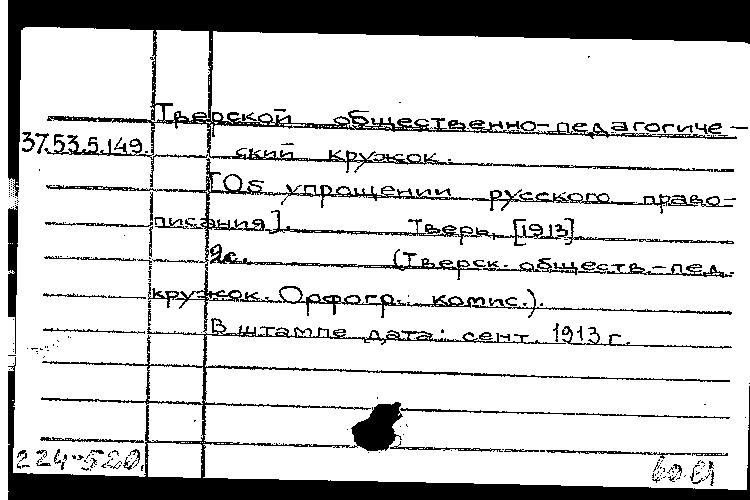 Тверской общественно-педагогиче-
37.53.5.149. ский кружок.
[Об упрощении русского право-
писания]. Тверь, [1913]
2с. (Тверск. обществ.-пед.
кружок. Орфогр. комис.).
В штампе дата: сент. 1913 г.
224-520.